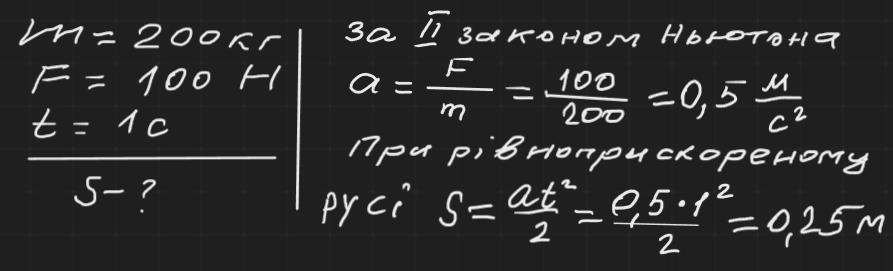 m = 200кг
F = 100 Н
t = 1с
S - ?
за II законом Ньютона
a = F/m = 100/200 = 0,5 м/с²
При рівноприскореному
русі S = at²/2 = 0,5·1²/2 = 0,25м